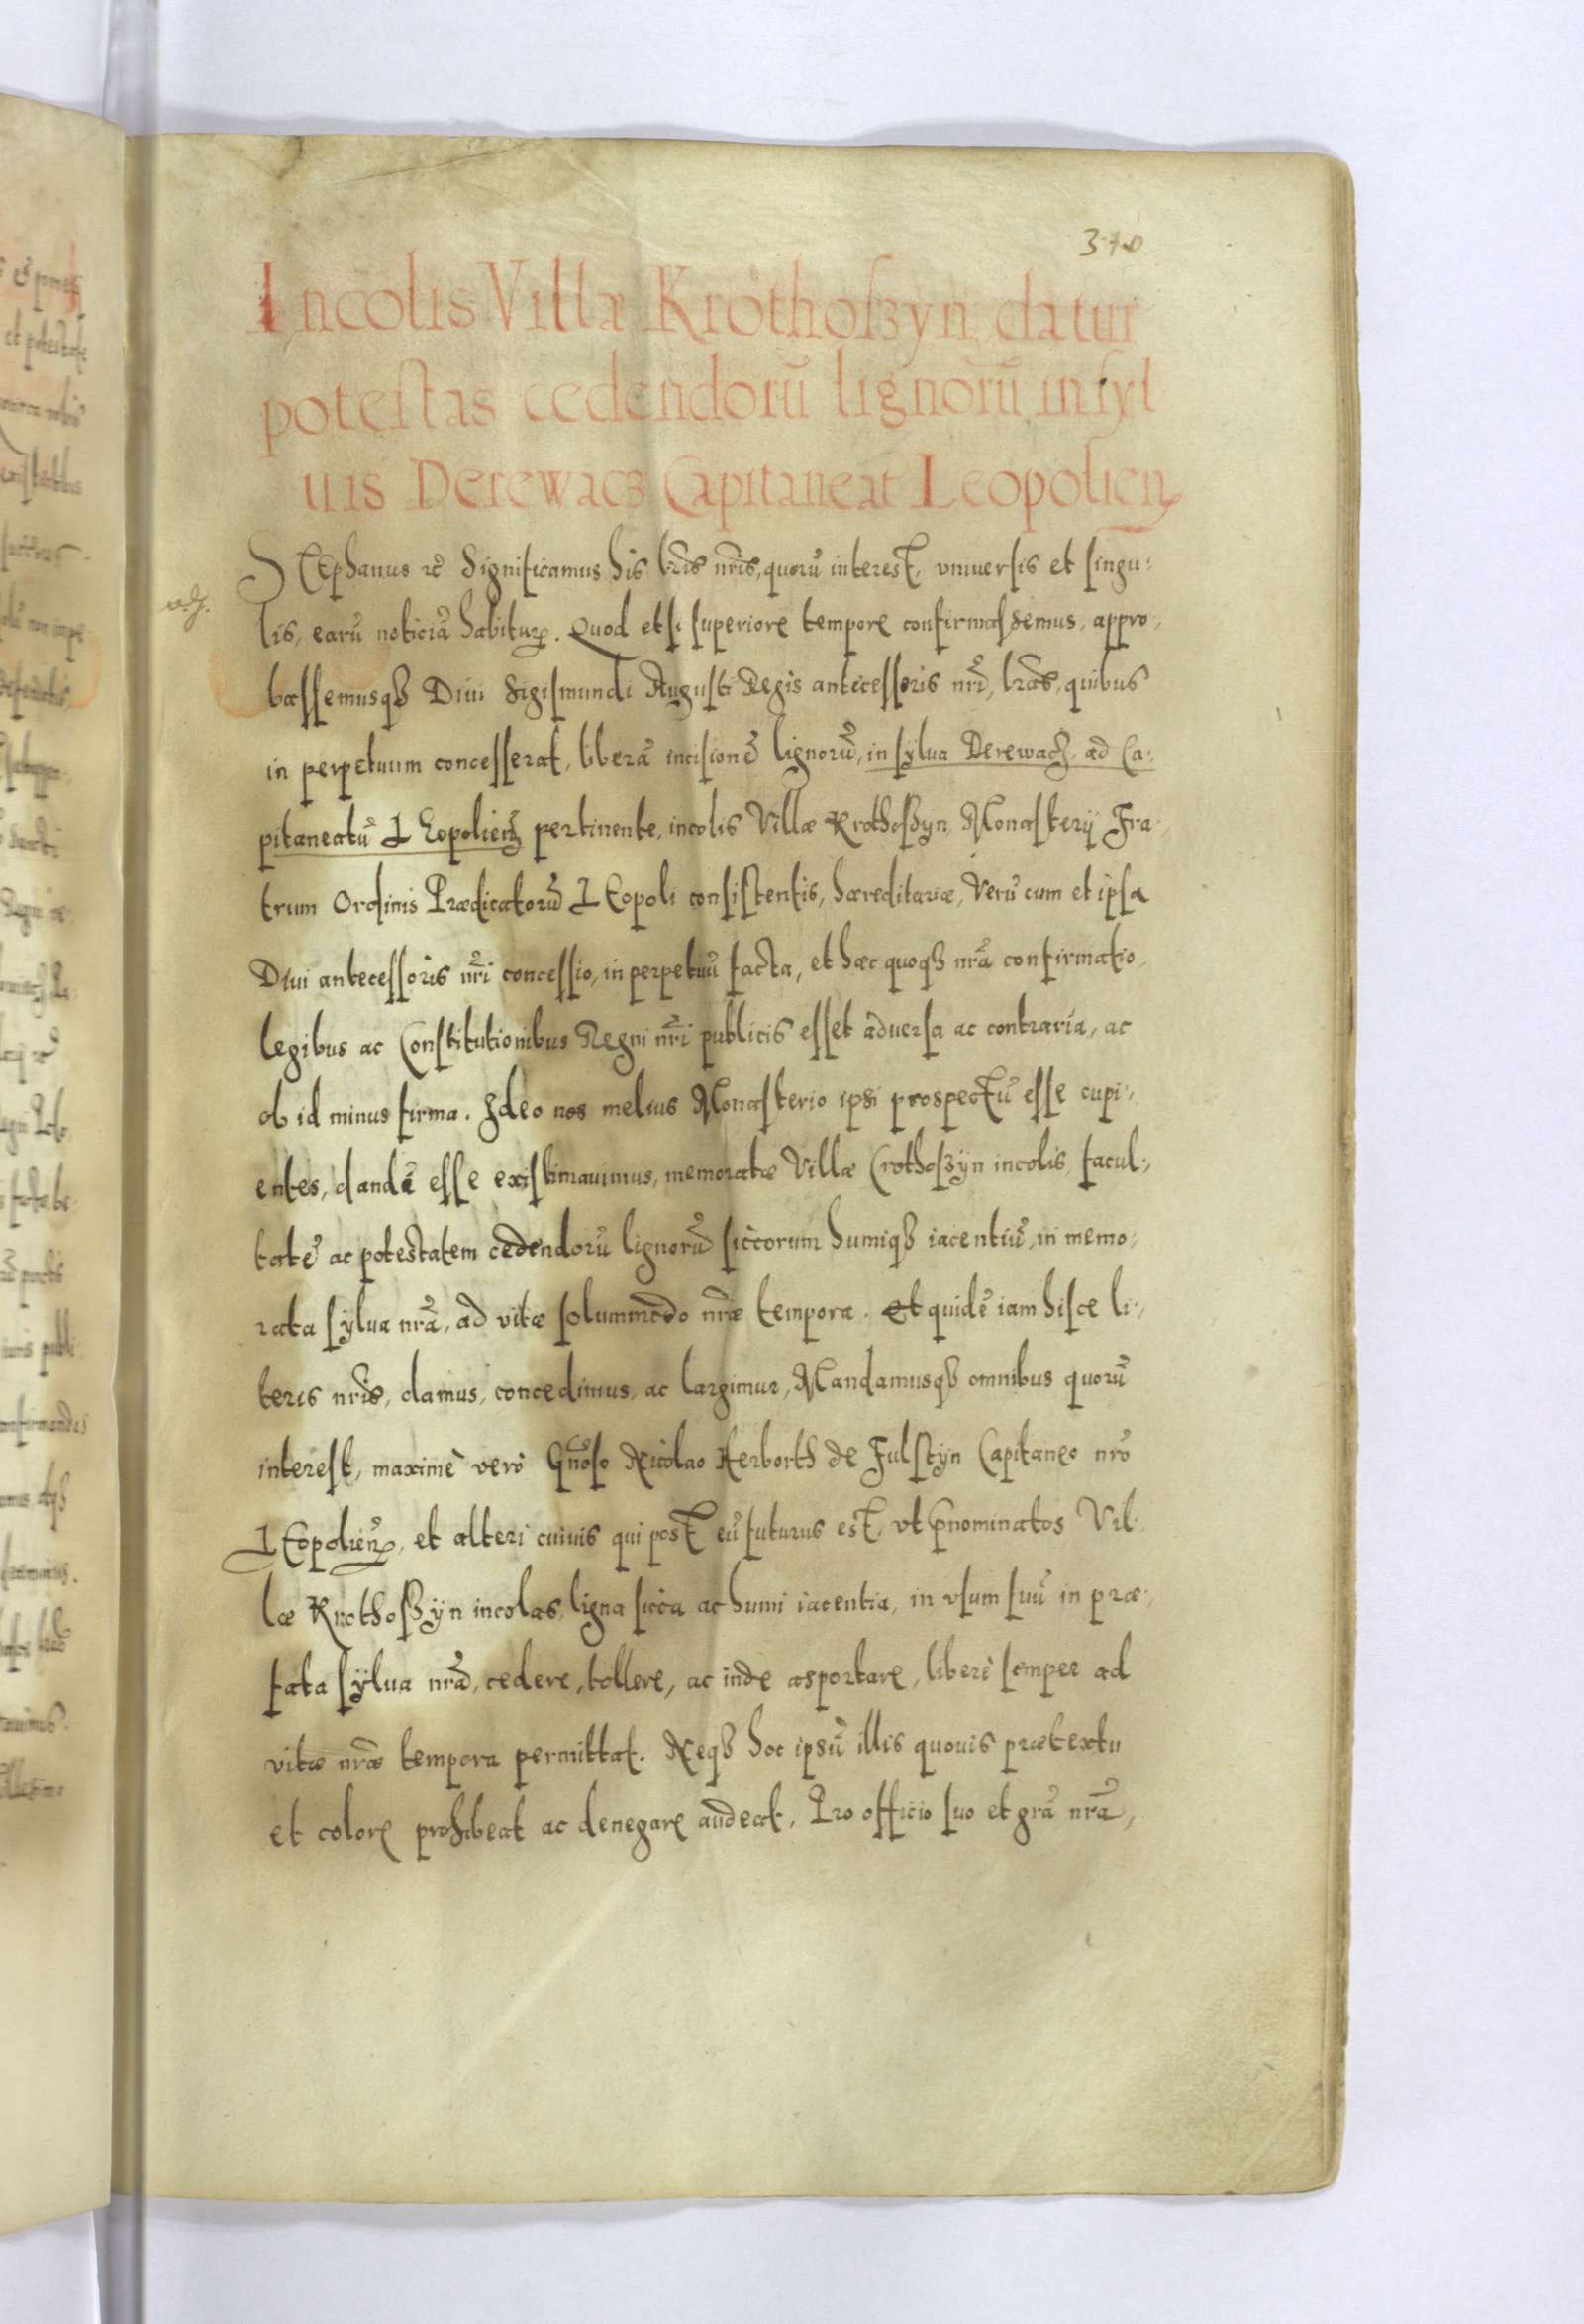 310
Incolis Villæ Krothoſzyn datur
poteſtas cedendorũ lignorũ in ſyl
uis Derewacz Capitaneat Leopolieñ
STEphanus ꝛc̃ Significamus his lr̃is nr̃is, quorũ intereſt, vniuerſis et ſingu:
lis, earũ noticiã habituꝝ. Quod etſi ſuperiore tempore confirmaſsemus, appro:,
baſſemusqȝ Diui Sigiſmundi Auguſti Regis anteceſſoris nr̃i, lr̃as, quibus
in perpetuum conceſſerat, liberã inciſionẽ lignorũ, in ſÿlua Derewacz, ad Ca:,
pitaneatũ LEopolieñ pertinente, incolis Villæ Krothoſzyn, Monaſterij Fra:,
trum Ordinis Prædicatorũ LEopoli conſiſtentis, hæreditariæ, Verũ cum et ipſa
Diui anteceſſoris nr̃i conceſſio, in perpetuũ facta, et hæc quoqȝ nr̃a confirmatio,
legibus ac Conſtitutionibus Regni nr̃i publicis eſſet aduerſa ac contraria, ac
ob id minus firma. Ideo nos melius Monaſterio ipsi prospectũ eſſe cupi:,
entes, dandã eſſe exiſtimauimus, memoratæ Villæ Crothoſzÿn incolis, facul:,
tatẽ ac poteſtatem cedendorũ lignorũ ſiccorum humiqȝ iacentiũ, in memo:,
rata ſÿlua nr̃a, ad vitæ ſolummodo nr̃æ tempora. Et quidẽ iam hiſce li:,
teris nr̃is, damus, concedimus, ac largimur, Mandamusqȝ omnibus quorũ
intereſt, maximè verò Gñoſo Nicolao Herborth de Fulſtÿn Capitaneo nr̃o
LEopolieñ, et alteri cuiuis qui poſt eũ futurus eſt, vt p̃nominatos Vil:,
læ Krothoſzÿn incolas, ligna ſicca ac humi iacentia, in vſum ſuũ in præ:,
fata ſÿlua nr̃a, cedere, tollere, ac inde asportare, liberè ſemper ad
vitæ nr̃æ tempora permittat. Neqȝ hoc ipsũ illis quouis prætextu
et colore prohibeat ac denegare audeat. Pro officio ſuo et gr̃a nr̃a,